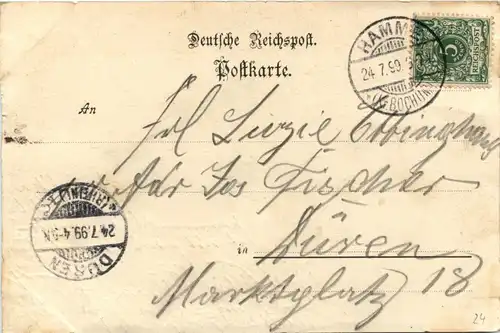 Deutsche Reichspost.
Postkarte.
HAMME
24.7.99
(KR BOCHUM)
REICHSPOST
An
Frl Luzie Ebbinghaus
Adr Jos Fischer
in Düren
Marktplatz 18
DÜREN
24.7.99.4-5N.
(RHEINL)
24